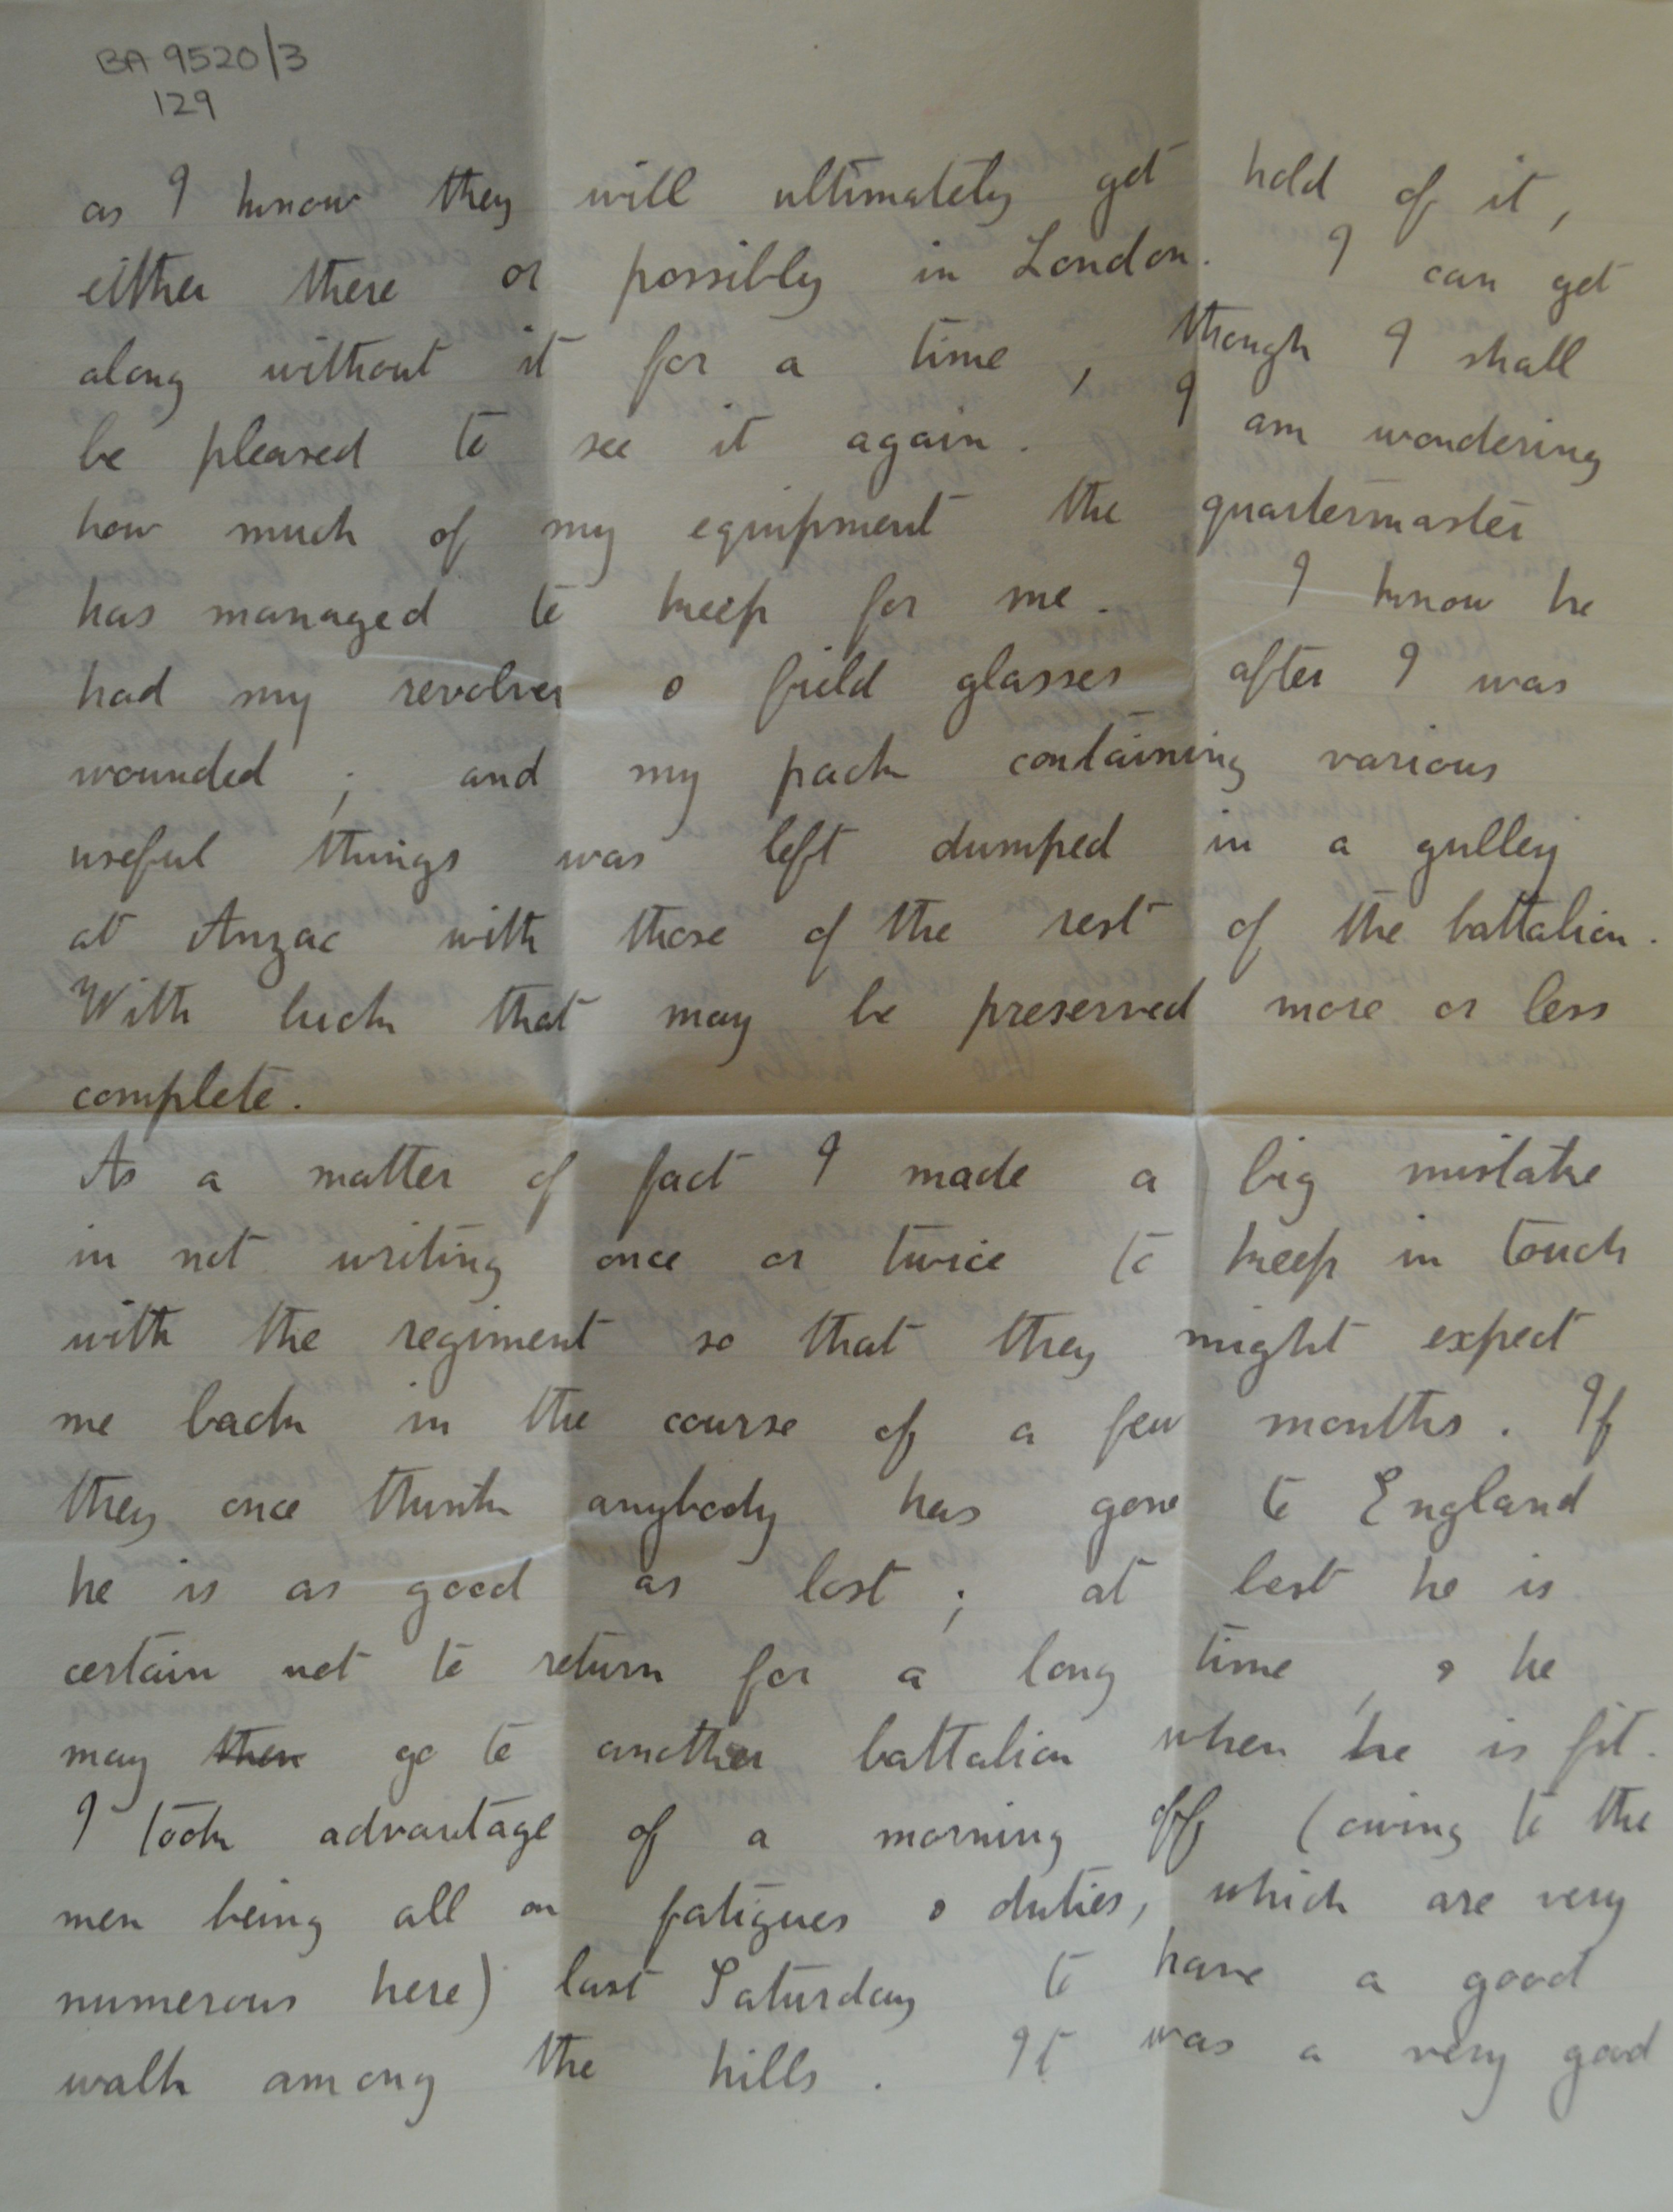 BA 9520/3
129
as I know they will ultimately get hold of it,
either there or possibly in London. I can get
along without it for a time, though I shall
be pleased to see it again. I am wondering
how much of my equipment the quartermaster
has managed to keep for me. I know he
had my revolver & field glasses after I was
wounded; and my pack containing various
useful things was left dumped in a gulley
at Anzac with those of the rest of the battalion.
With luck that may be preserved more or less
complete.
As a matter of fact I made a big mistake
in not writing once or twice to keep in touch
with the regiment so that they might expect
me back in the course of a few months. If
they once think anybody has gone to England
he is as good as lost; at best he is
certain not to return for a long time, & he
may then go to another battalion when he is fit.
I took advantage of a morning off (owing to the
men being all on fatigues & duties, which are very
numerous here) last Saturday to have a good
walk among the hills. It was a very good